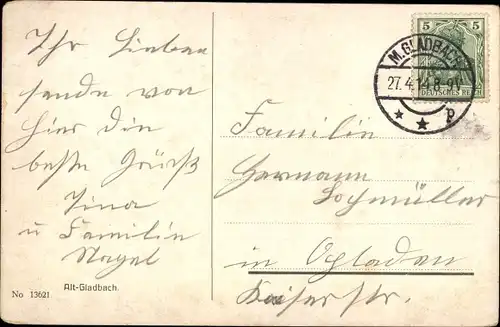 Ihr Lieben
sende von
hier die
beste Grüße
Tina
u Familie
Nagel
Alt-Gladbach.
No 13621
5 5
DEUTSCHES REICH
M. GLADBACH
27.4.14.8-9N
* * p
Familie
Hermann
Lochmüller
in Opladen
Kaiserstr.